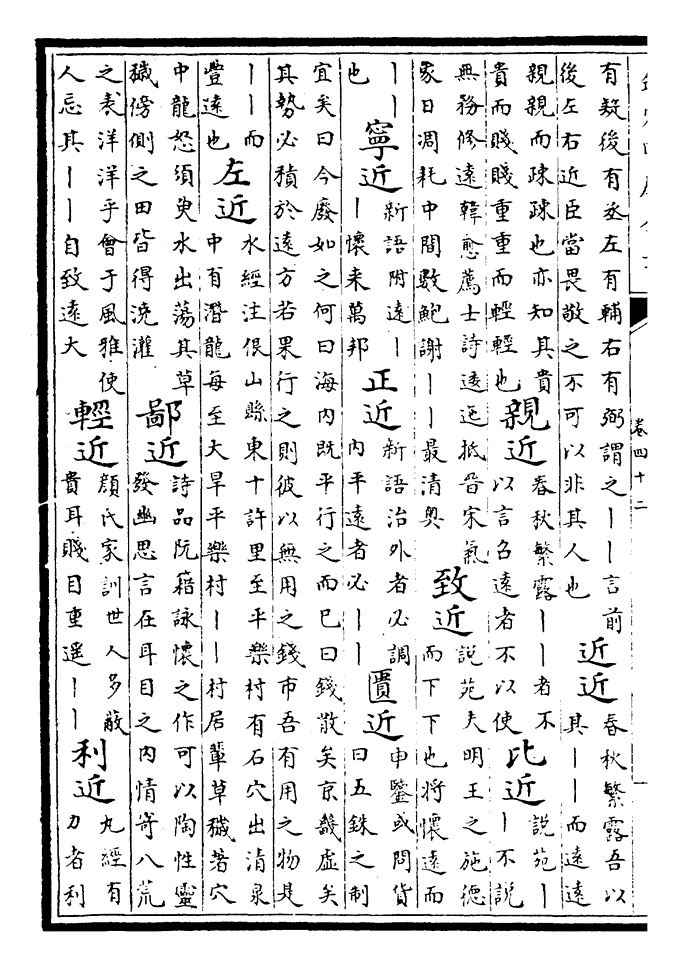 卷四十二
有疑後有丞左有輔右有弼謂之丨丨言前
後左右近臣當畏敬之不可以非其人也
近近
春秋繁露吾以
其丨丨而遠遠
親親而疎疎也亦知其貴
貴而賤賤重重而輕輕也
親近
春秋繁露丨丨者不
以言召遠者不以使
比近
說苑丨
丨不說
無務修遠韓愈薦士詩逶迤抵晉宋氣
象日凋耗中間數鮑謝丨丨最清奧
致近
說苑夫明王之施德
而下下也將懷遠而
丨丨
也
寧近
新語附遠丨
丨懷来萬邦
正近
新語治外者必調
内平遠者必丨丨
匱近
申鑒或問貨
曰五銖之制
宜矣曰今廢如之何曰海内既平行之而已曰錢散矣京畿虚矣
其勢必積於遠方若果行之則彼以無用之錢市吾有用之物是
丨丨而
豐遠也
左近
水經注佷山縣東十許里至平樂村有石穴出清泉
中有潛龍每至大旱平樂村丨丨村居輦草穢著穴
中龍怒須臾水出蕩其草
穢傍側之田皆得澆灌
鄙近
詩品阮籍詠懷之作可以陶性靈
發幽思言在耳目之内情寄八荒
之表洋洋乎會于風雅使
人忘其丨丨自致遠大
輕近
顔氏家訓世人多蔽
貴耳賤目重遥丨丨
利近
丸經有
力者利